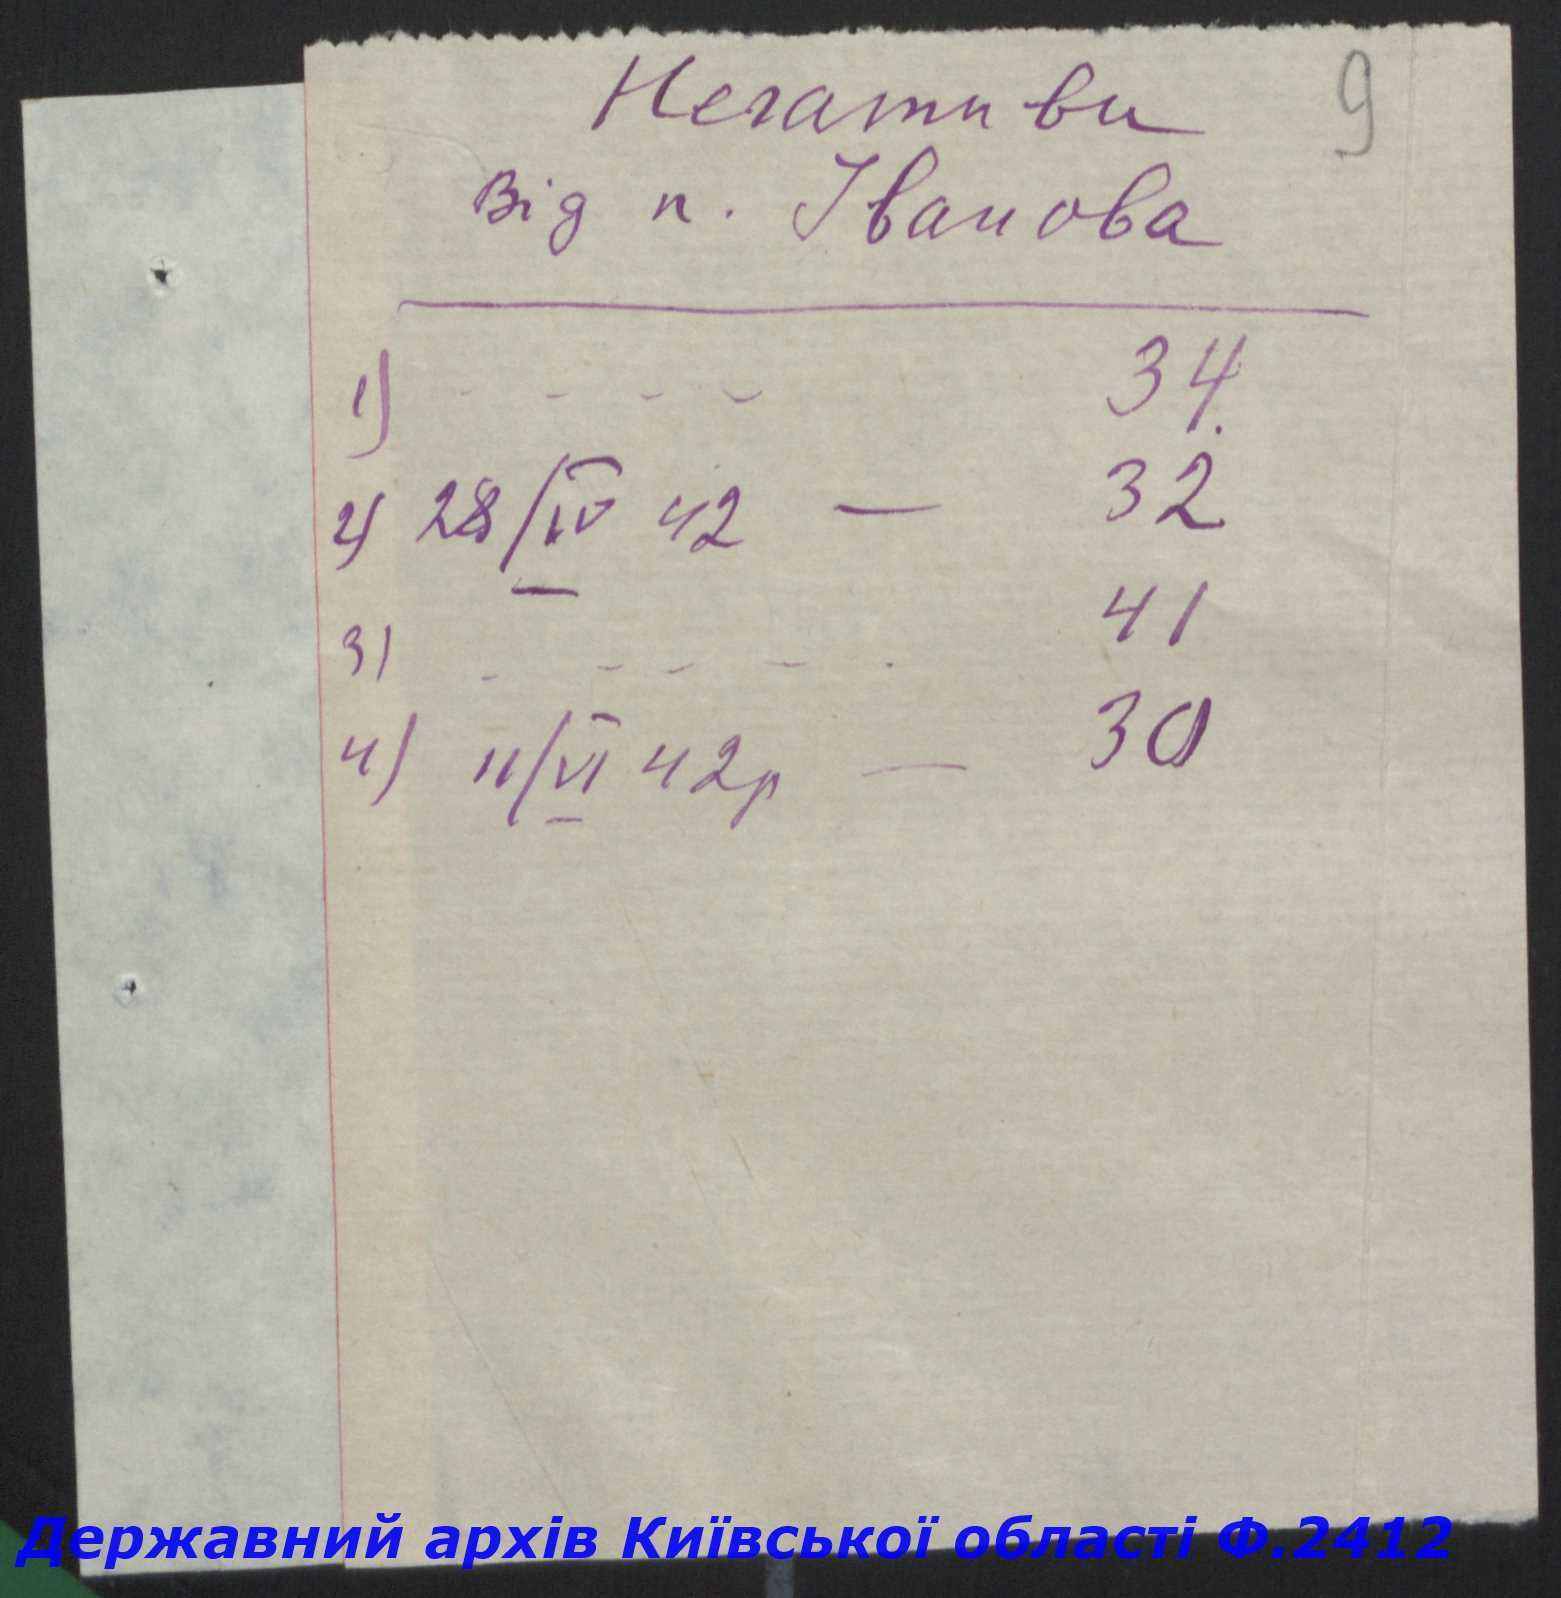 Негативи
9
Від п. Іванова
1) - - - - 34.
2) 28/IV 42 — 32
3) - - - - . 41
4) 11/VI 42р — 30
Державний архів Київської області Ф.2412